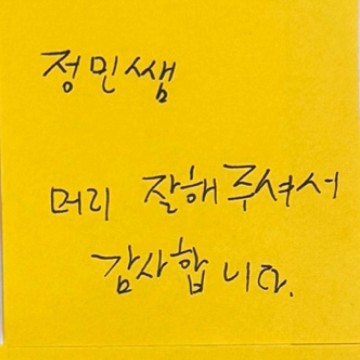 정민쌤
머리 잘해주셔서
감사합니다.